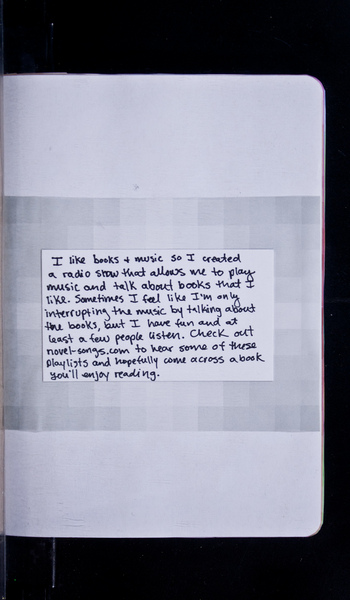 I like books + music so I created
a radio show that allows me to play
music and talk about books that I
like. Sometimes I feel like I'm only
interrupting the music by talking about
the books, but I have fun and at
least a few people listen. Check out
novel-songs.com to hear some of these
playlists and hopefully come across a book
you'll enjoy reading.